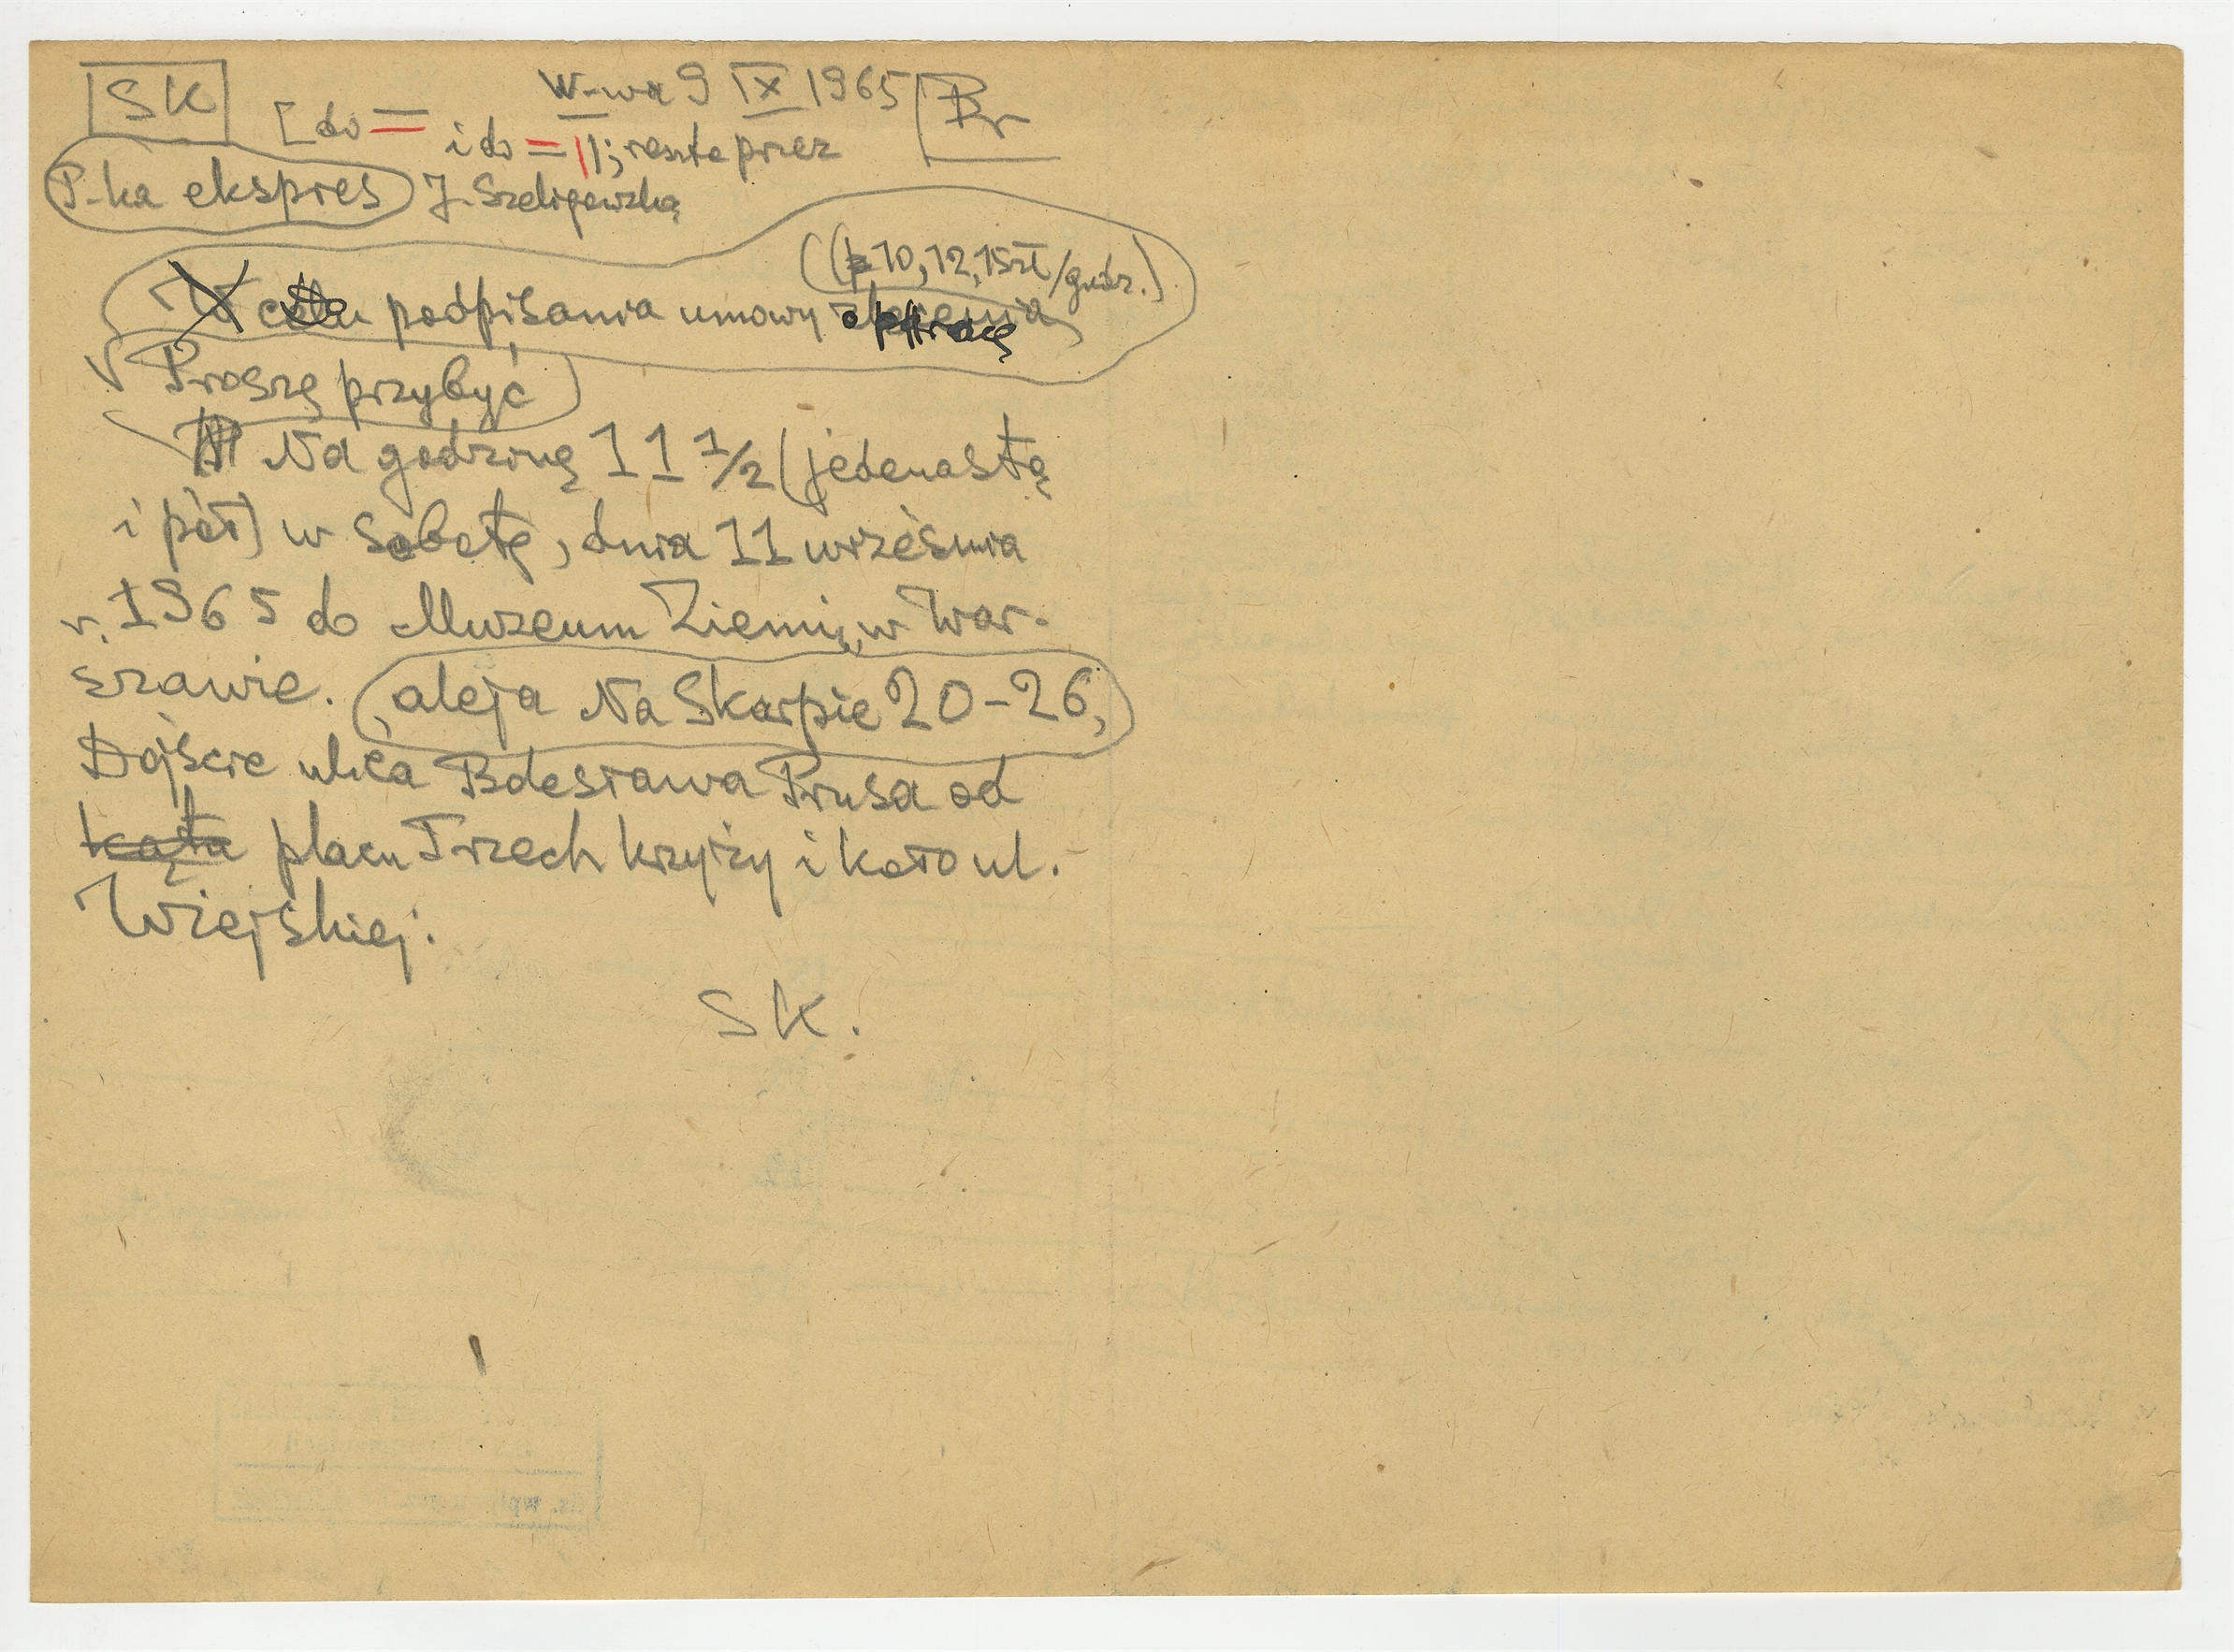 SK
W-wa 9 IX 1965
Pr
[do =
i do = ||; reszta przez
P-ka ekspres
J. Szeligowską
(10, 12, 15 zł/godz.)
W celu podpisania umowy o pracę
Proszę przybyć
Na godzinę 11 1/2 (jedenastą
i pół) w sobotę, dnia 11 września
r. 1965 do Muzeum Ziemi, w War-
szawie. aleja Na Skarpie 20-26,
Dojście ulicą Bolesława Prusa od
kąta placu Trzech krzyży i koło ul.
Wiejskiej.
SK.